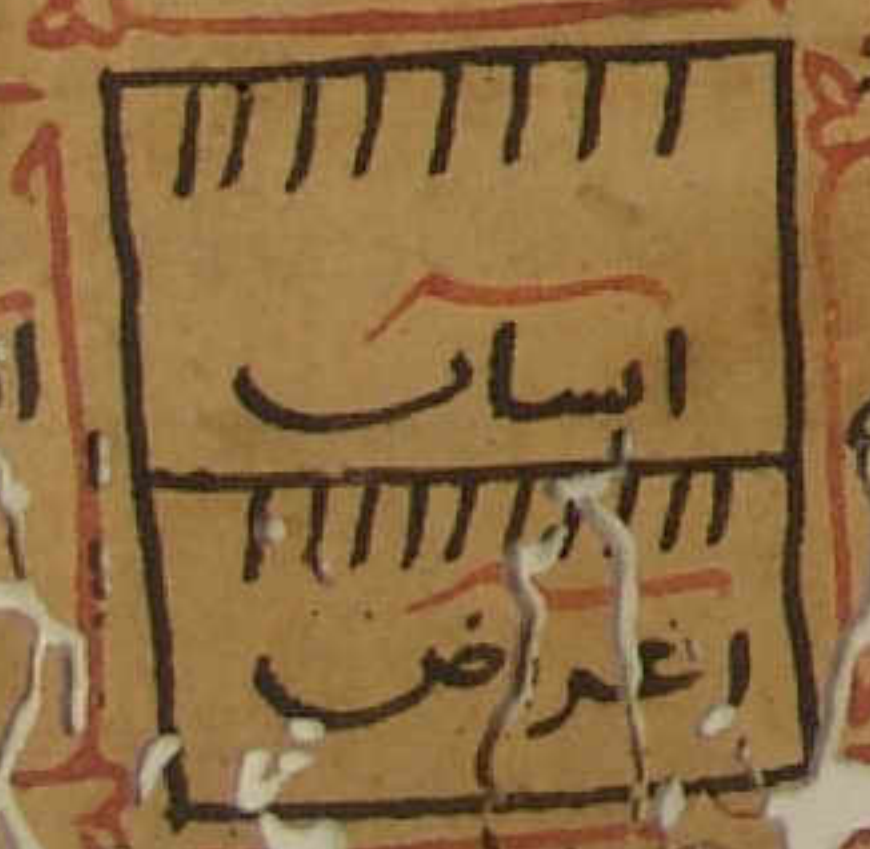 اسباب
اعراض